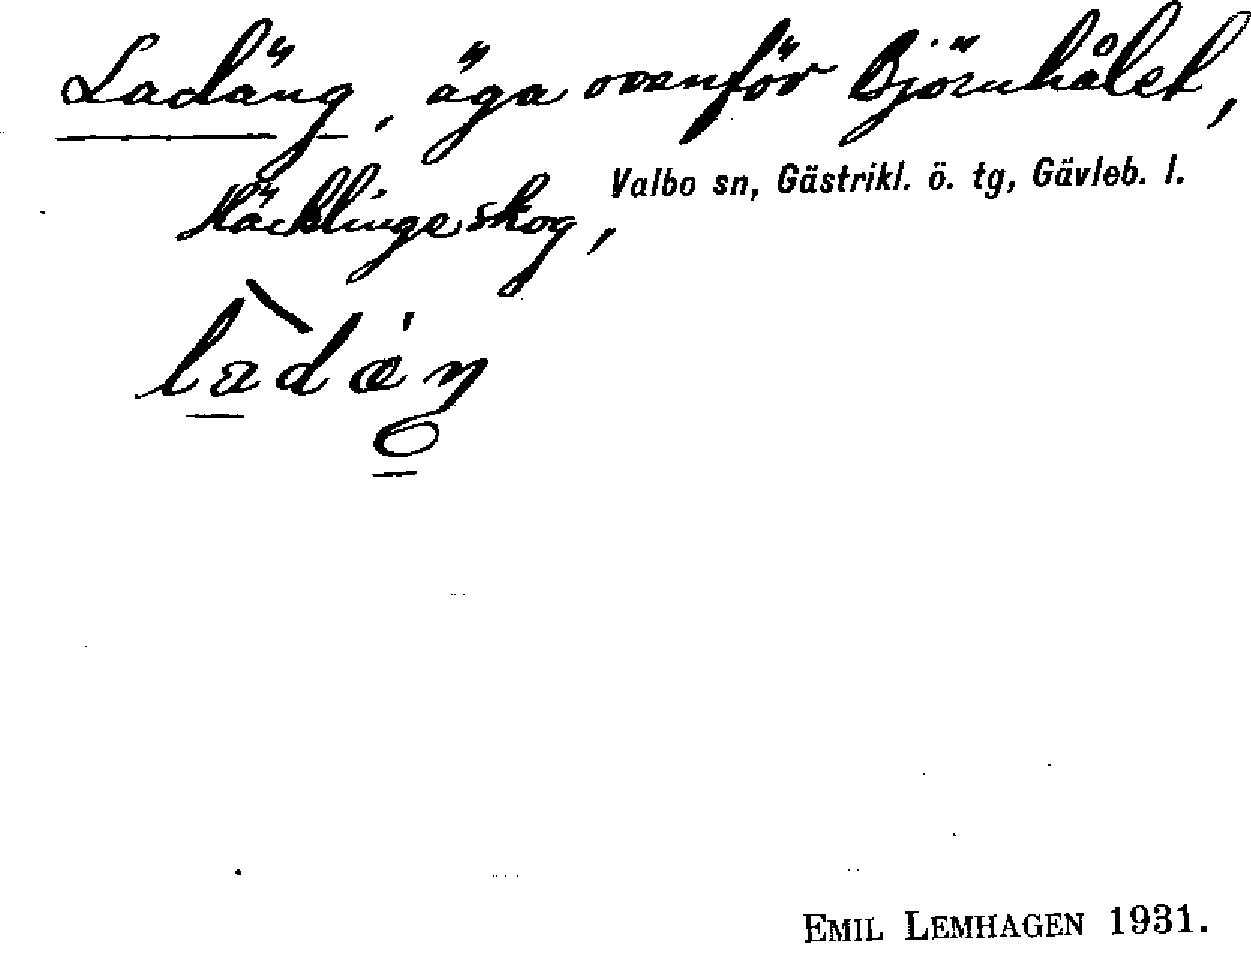 Ladäng, äga ovanför Björnhålet,
Häcklinge skog,
Valbo sn, Gästrikl. ö. tg, Gävleb. l.
EMIL LEMHAGEN 1931.